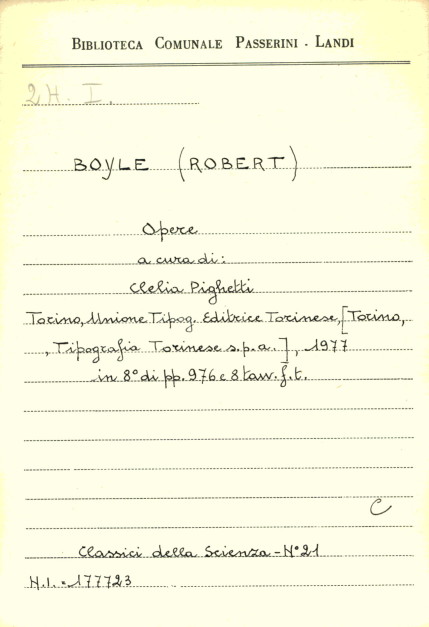 BIBLIOTECA COMUNALE PASSERINI - LANDI
2H. I.
BOYLE (ROBERT)
Opere
a cura di:
Clelia Pighetti
Torino, Unione Tipog. Editrice Torinese, [Torino,
, Tipografia Torinese s.p.a.], 1977
in 8° di pp. 976 e 8 tavv. f.t.
C
Classici della Scienza - N° 21
N.I. = 177723